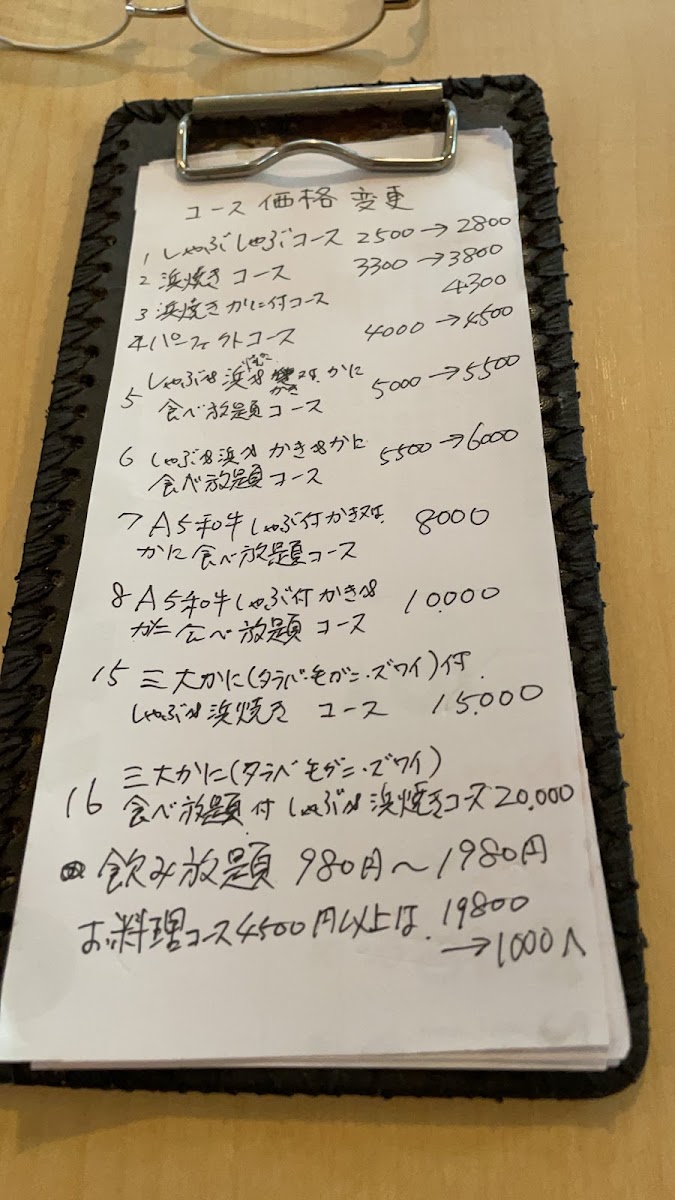 コース 価格 変更
1 しゃぶしゃぶコース 2500→2800
2 浜焼き コース 3300→3800
3 浜焼き かに付コース 4300
4 パーフェクトコース 4000→4500
5 しゃぶ& 浜& かき 又は かに 5000→5500
食べ放題 コース
6 しゃぶ&浜& かき&かに 5500→6000
食べ放題コース
7 A5和牛しゃぶ付かき又は 8000
かに 食べ放題コース
8 A5和牛しゃぶ付かき& 10.000
かに 食べ放題 コース
15 三大かに(タラバ・毛ガニ・ズワイ)付
しゃぶ&浜焼き コース 15.000
三大かに(タラバ 毛ガニ・ズワイ)
16 食べ放題 付 しゃぶ& 浜焼きコース 20.000
飲み放題 980円〜1980円
お料理コース4500円以上は 19800
→1000へ